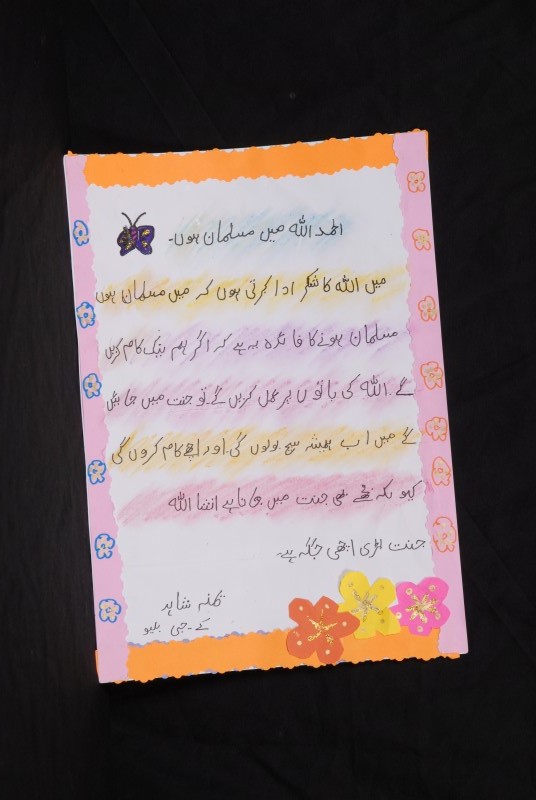 الحمد اللہ میں مسلمان ہوں۔
میں اللہ کا شکر ادا کرتی ہوں کہ میں مسلمان ہوں
مسلمان ہونے کا فائدہ یہ ہے کہ اگر ہم نیک کام کریں
گے۔ اللہ کی باتوں پر عمل کریں گے۔ تو جنت میں جائیں
گے میں اب ہمیشہ سچ بولوں گی اور اچھے کام کروں گی
کیونکہ مجھے بھی جنت میں جانا ہے انشا اللہ
جنت بڑی اچھی جگہ ہے۔
شاہد
کے۔جی بلیو